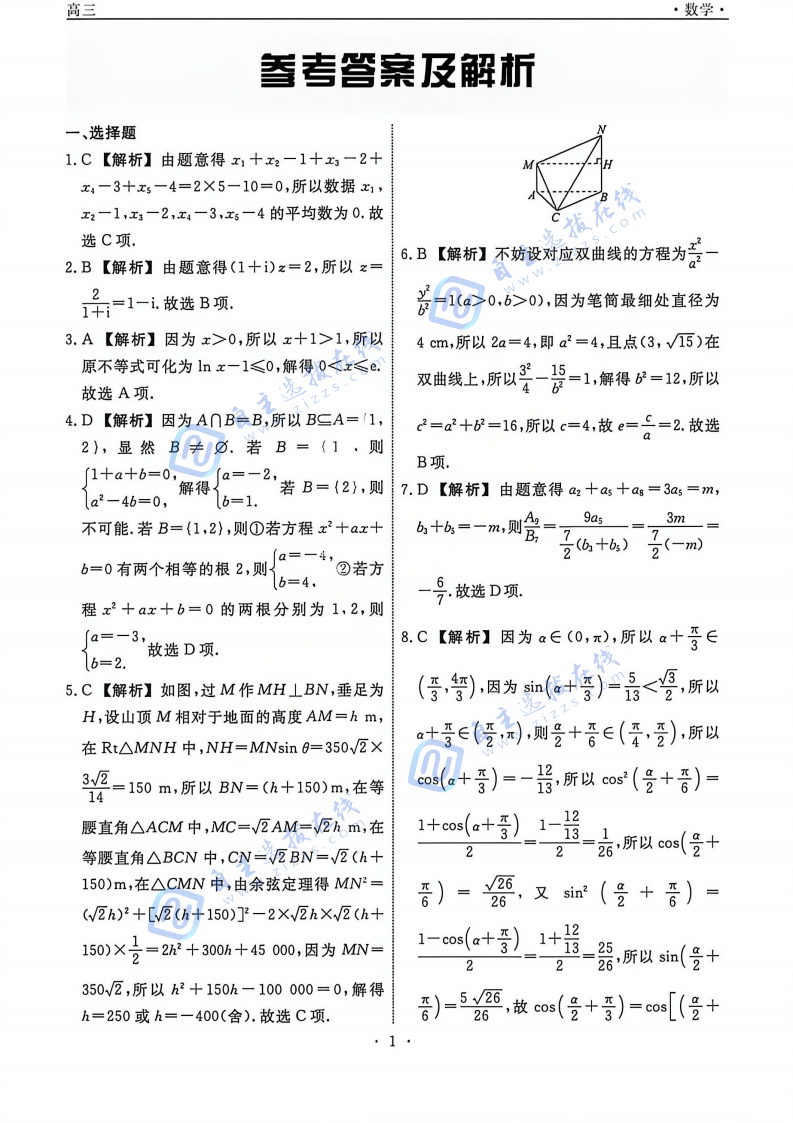 高三
·数学·
参考答案及解析
一、选择题
1.C 【解析】由题意得 x₁+x₂-1+x₃-2+
x₄-3+x₅-4=2×5-10=0,所以数据 x₁,
x₂-1,x₃-2,x₄-3,x₅-4 的平均数为 0.故
选 C 项.
2.B 【解析】由题意得(1+i)z=2,所以 z=
2/(1+i)=1-i.故选 B 项.
3.A 【解析】因为 x>0,所以 x+1>1,所以
原不等式可化为 ln x-1≤0,解得 0<x≤e.
故选 A 项.
4.D 【解析】因为 A∩B=B,所以 B⊆A={1,
2},显然 B≠∅.若 B={1 ,则
{1+a+b=0, a²-4b=0, 解得{a=-2, b=1. 若 B={2},则
不可能.若 B={1,2},则①若方程 x²+ax+
b=0 有两个相等的根 2,则{a=-4, b=4, ②若方
程 x²+ax+b=0 的两根分别为 1,2,则
{a=-3, b=2. 故选 D 项.
5.C 【解析】如图,过 M 作 MH⊥BN,垂足为
H,设山顶 M 相对于地面的高度 AM=h m,
在 Rt△MNH 中,NH=MNsin θ=350√2×
3√2/14=150 m,所以 BN=(h+150)m,在等
腰直角△ACM 中,MC=√2AM=√2h m,在
等腰直角△BCN 中,CN=√2BN=√2(h+
150)m,在△CMN 中,由余弦定理得 MN²=
(√2h)²+[√2(h+150)]²-2×√2h×√2(h+
150)×1/2=2h²+300h+45 000,因为 MN=
350√2,所以 h²+150h-100 000=0,解得
h=250 或 h=-400(舍).故选 C 项.
N
M
H
A
B
C
6.B 【解析】不妨设对应双曲线的方程为x²/a²-
y²/b²=1(a>0,b>0),因为笔筒最细处直径为
4 cm,所以 2a=4,即 a²=4,且点(3,√15)在
双曲线上,所以3²/4-15/b²=1,解得 b²=12,所以
c²=a²+b²=16,所以 c=4,故 e=c/a=2.故选
B 项.
7.D 【解析】由题意得 a₂+a₅+a₈=3a₅=m,
b₃+b₅=-m,则A₉/B₇=9a₅/(7/2(b₃+b₅))=3m/(7/2(-m))=
-6/7.故选 D 项.
8.C 【解析】因为 α∈(0,π),所以 α+π/3∈
(π/3,4π/3),因为 sin(α+π/3)=5/13<√3/2,所以
α+π/3∈(π/2,π),则α/2+π/6∈(π/4,π/2),所以
cos(α+π/3)=-12/13,所以 cos²(α/2+π/6)=
(1+cos(α+π/3))/2=(1-12/13)/2=1/26,所以 cos(α/2+
π/6)=√26/26,又 sin²(α/2+π/6)=
(1-cos(α+π/3))/2=(1+12/13)/2=25/26,所以 sin(α/2+
π/6)=5√26/26,故 cos(α/2+π/3)=cos[(α/2+
· 1 ·
自主选拔在线
www.zizzs.com